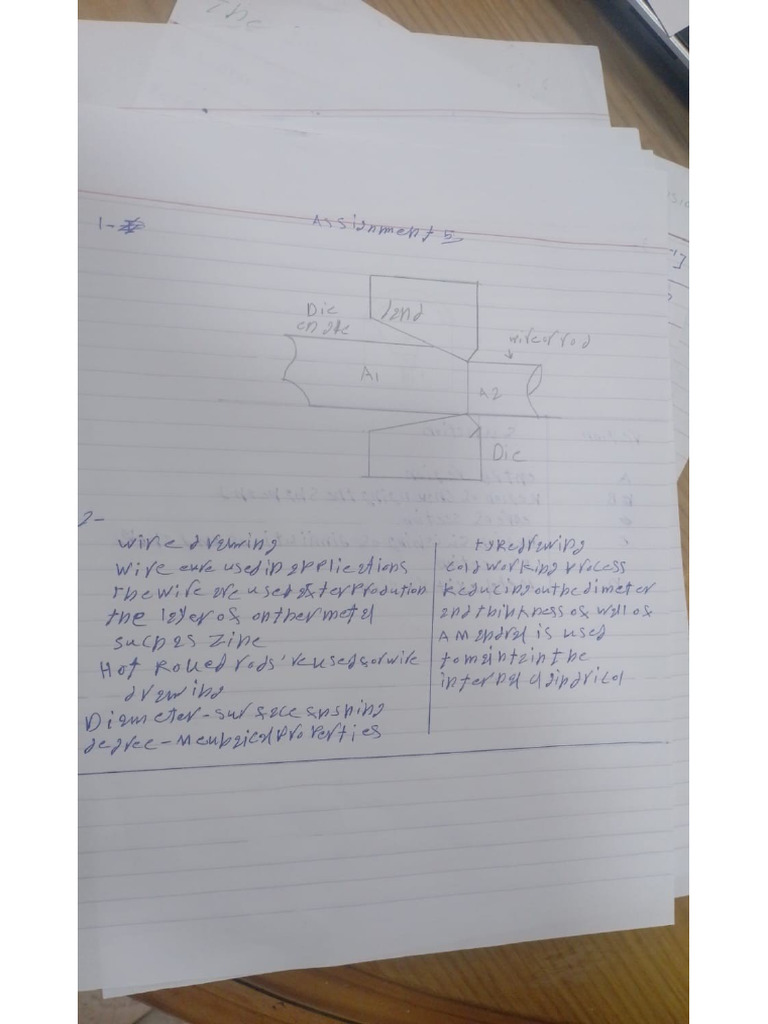 The
Assignment 5
1-
Die
angle
land
wire or rod
A1
A2
Die
2-
wire drawing
wire are used in applications
the wire are used after prodution
the layer of onther metal
such as zine
Hot Rolled rods're used for wire
drawing
Diameter-surface
degree-
properties
tube drawing
cold working process
Reducing
and thinkness of wall of
A Mandrel is used
to maintain the
internal